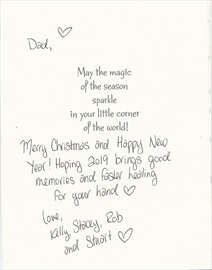 Dad,
May the magic
of the season
sparkle
in your little corner
of the world!
Merry Christmas and Happy New
Year! Hoping 2019 brings good
memories and faster healing
for your hand ♡
Love,
Kelly, Stacey, Rob
and Stuart ♡